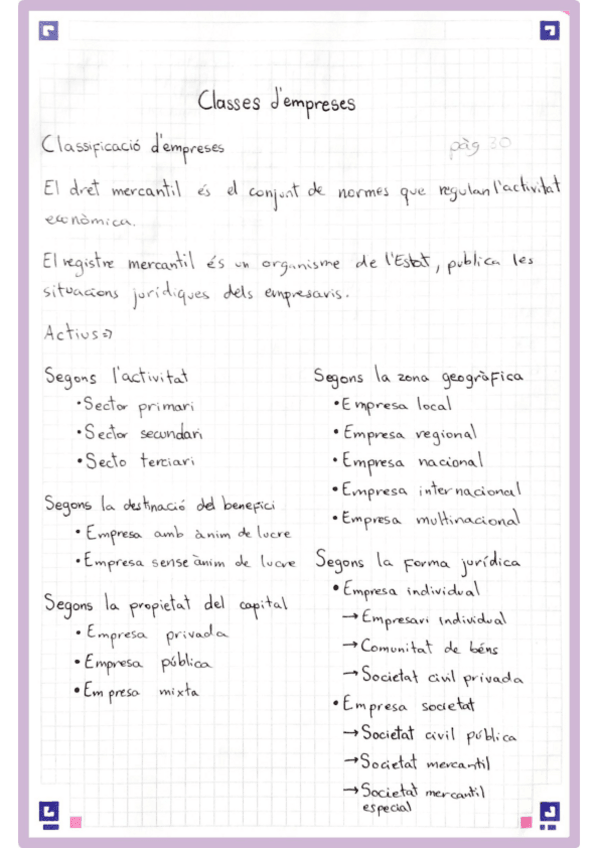 Classes d'empreses
Classificació d'empreses
pàg 30
El dret mercantil és el conjunt de normes que regulan l'activitat
econòmica.
El registre mercantil és un organisme de l'Estat, publica les
situacions jurídiques dels empresaris.
Actius⇒
Segons l'activitat
•Sector primari
•Sector secundari
•Secto terciari
Segons la destinació del benefici
• Empresa amb ànim de lucre
•Empresa sense ànim de lucre
Segons la propietat del capital
• Empresa privada
• Empresa pública
•Empresa mixta
Segons la zona geogràfica
•Empresa local
• Empresa regional
• Empresa nacional
• Empresa internacional
• Empresa multinacional
Segons la forma jurídica
•Empresa individual
→Empresari individual
→Comunitat de béns
→Societat civil privada
•Empresa societat
→Societat civil pública
→Societat mercantil
→Societat mercantil
especial